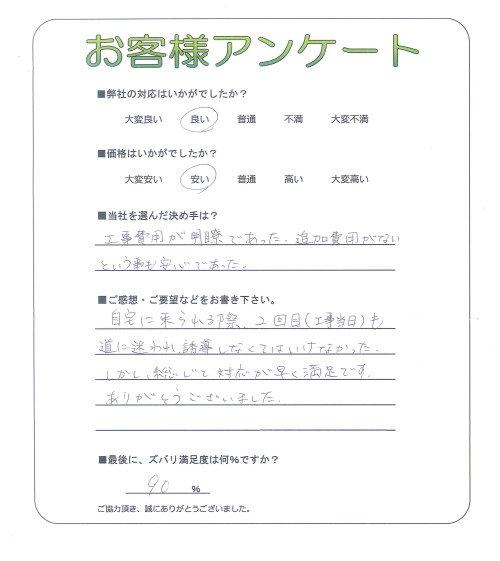 お客様アンケート
■弊社の対応はいかがでしたか？
大変良い 良い 普通 不満 大変不満
■価格はいかがでしたか？
大変安い 安い 普通 高い 大変高い
■当社を選んだ決め手は？
工事費用が明瞭であった．追加費用がない
という事も安心であった。
■ご感想・ご要望などをお書き下さい。
自宅に来られる際、2回目(工事当日)も
道に迷われ、誘導しなくてはいけなかった．
しかし、総じて対応が早く満足です．
ありがとうございました．
■最後に、ズバリ満足度は何%ですか？
90 %
ご協力頂き、誠にありがとうございました。